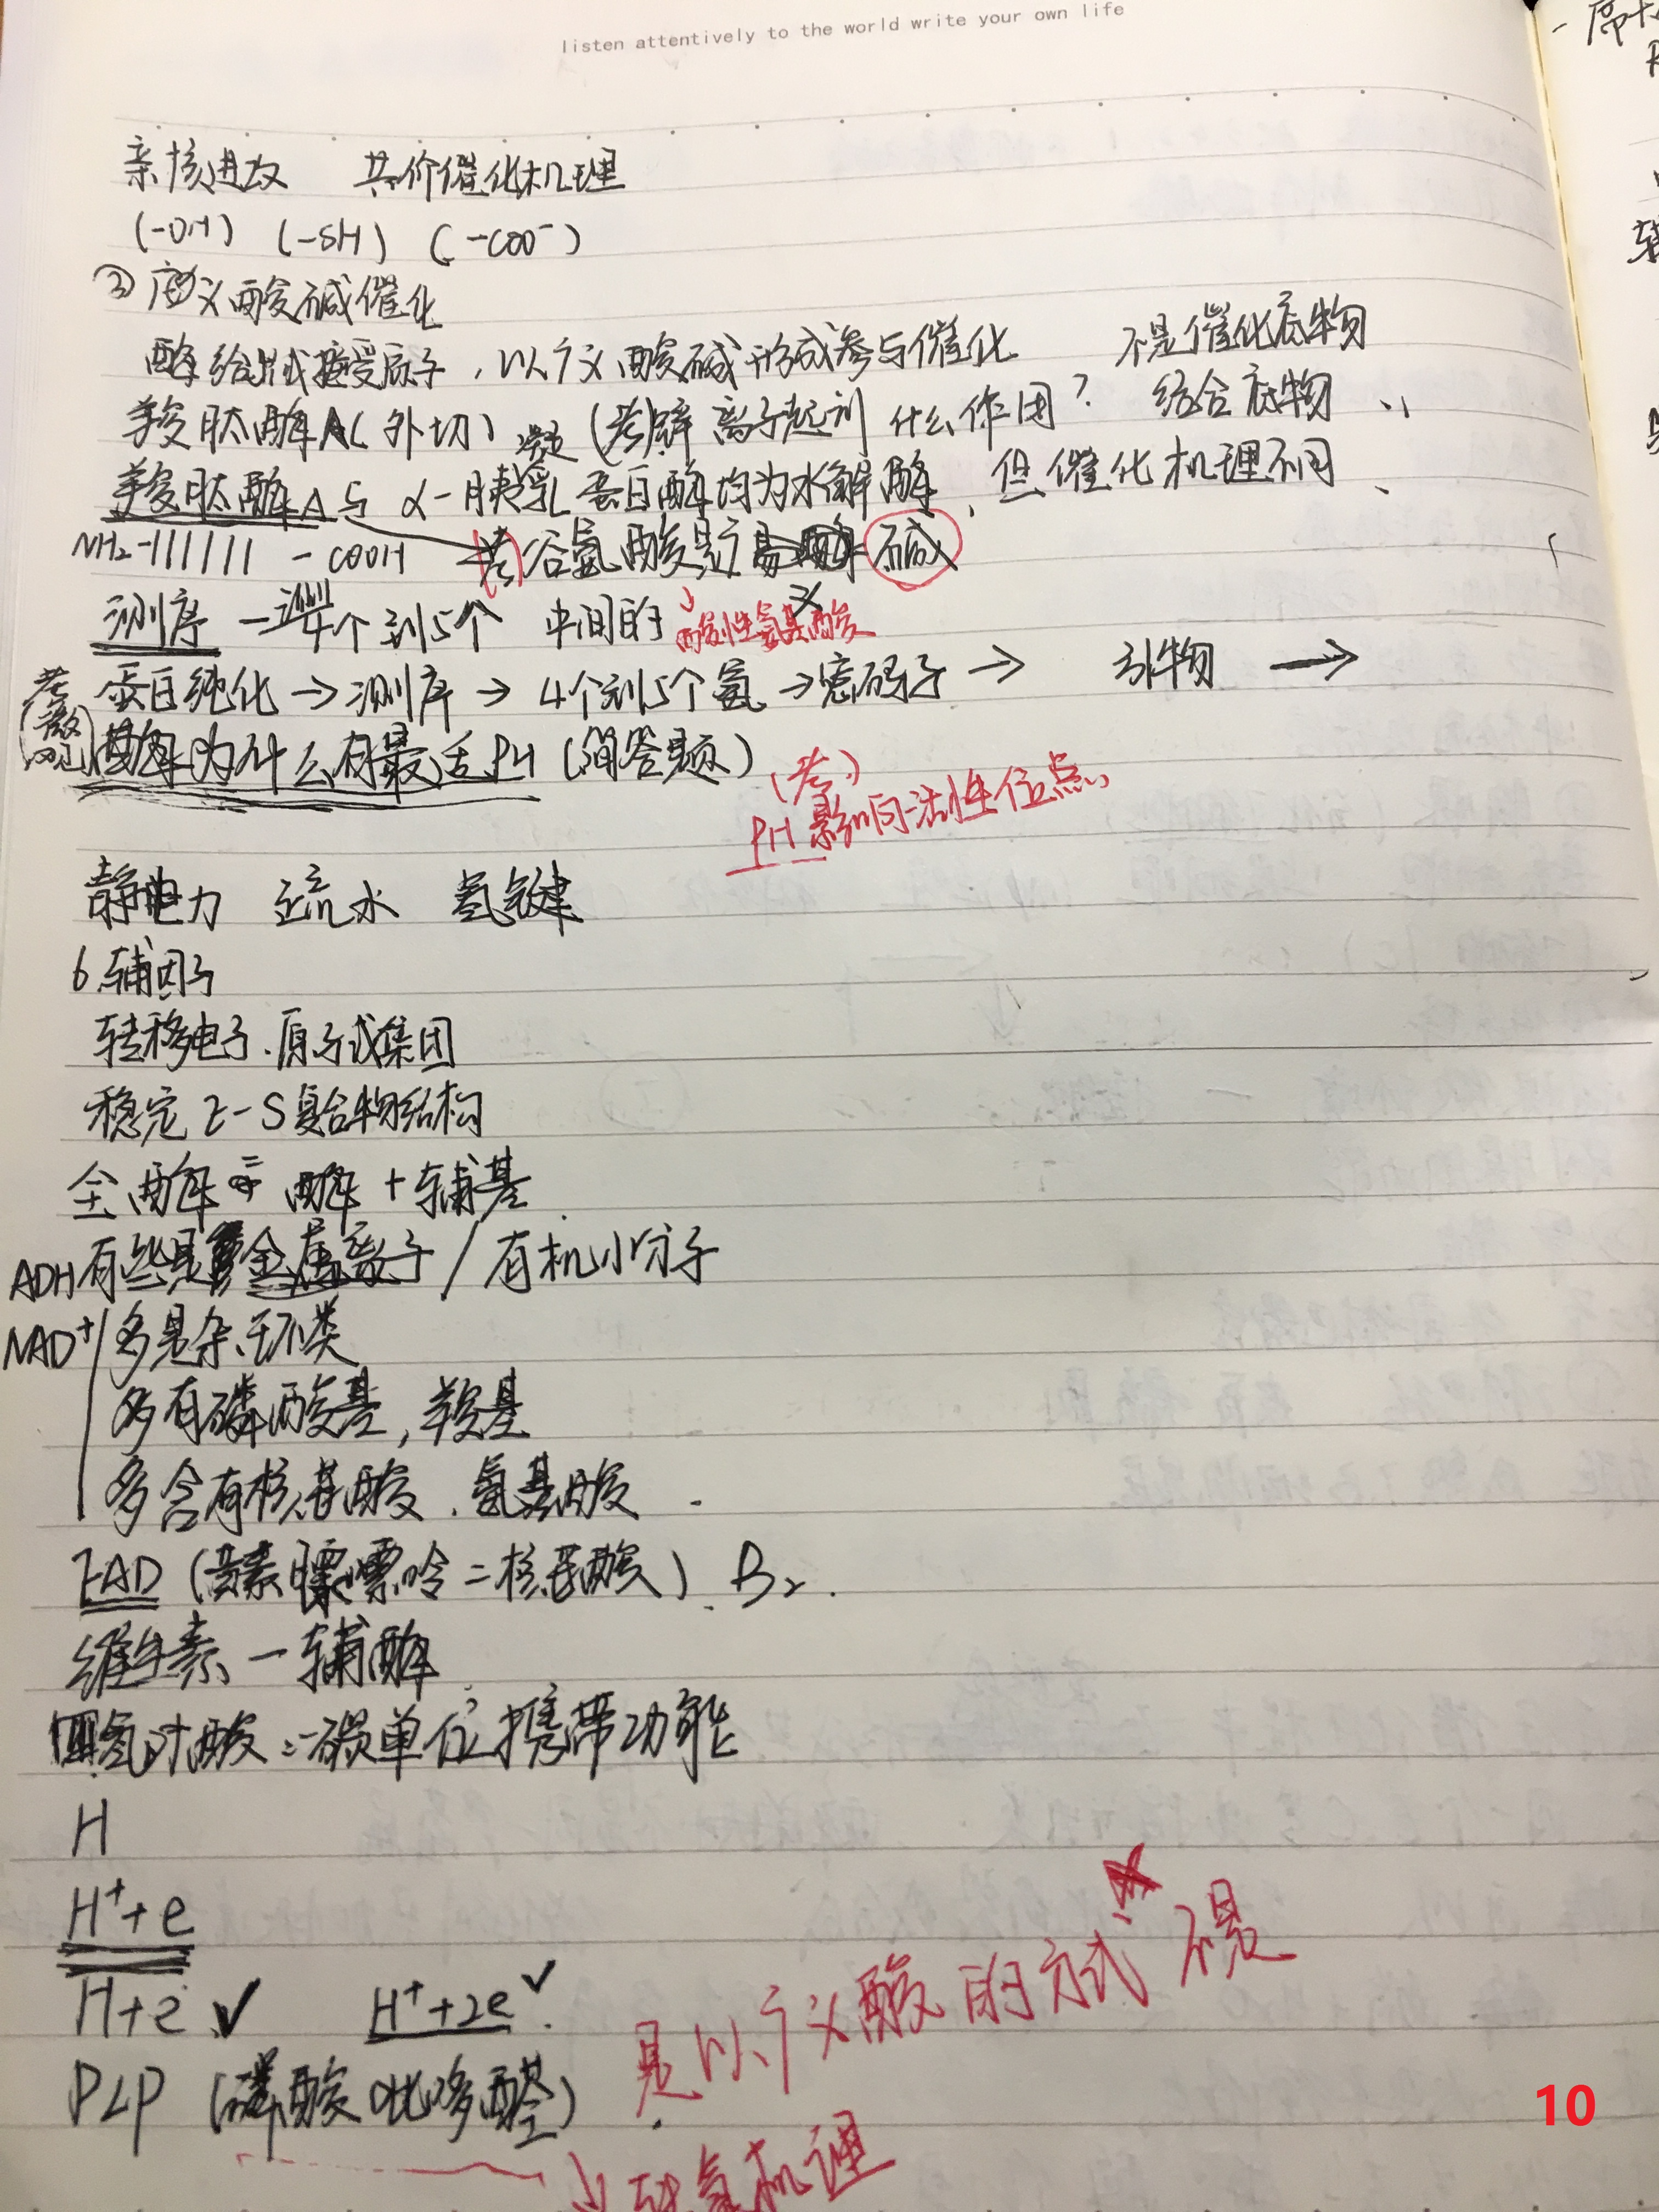 listen attentively to the world write your own life
亲核进攻 共价催化机理
(-OH) (-SH) (-COO⁻)
③ 广义酸碱催化
酶给出或接受质子，以广义酸碱形成参与催化 不是催化底物
羧肽酶A(外切) (考)锌离子起到什么作用？ 结合底物
羧肽酶A与 α-胰乳蛋白酶均为水解酶，但催化机理不同、
NH₂-|||||| -COOH (考)谷氨酸是广义碱
测序 一端 4个到5个 中间的 ↓酸性氨基酸
蛋白纯化→测序→ 4个到5个氨→密码子→ 引物 →
考 酶为什么有最适PH (简答题)
(考)
PH影响活性位点
静电力 疏水 氢键
6.辅因子
转移电子.原子或集团
稳定E-S复合物结构
全酶 = 酶 + 辅基
ADH 有些是金属离子 / 有机小分子
NAD⁺ 多是杂环类
多有磷酸基，羧基
多含有核苷酸．氨基酸．
FAD (黄素腺嘌呤二核苷酸) B₂.
维生素—辅酶
四氢叶酸:一碳单位携带功能
H
H⁺+e
H+e ✓ H⁺+2e ✓
是以广义酸的方式 不是
PLP (磷酸吡哆醛)
↓转氨机理
10